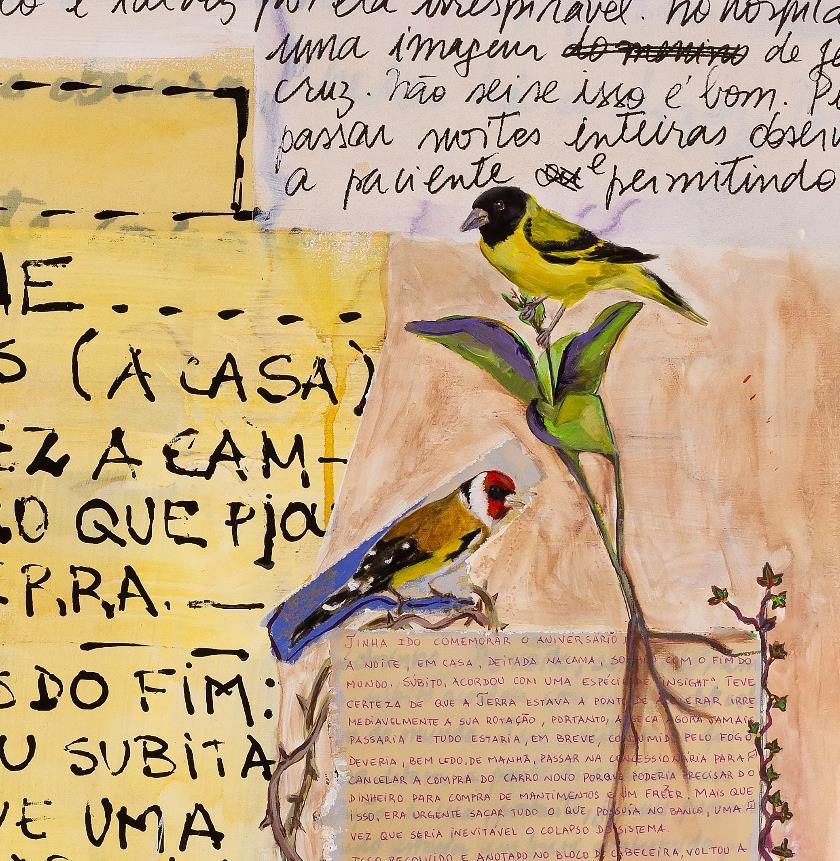 é talvez por ela irrespirável. no hospita
uma imagem do menino de
cruz. não sei se isso é bom.
passar noites inteiras obser
a paciente e permitindo
ME . . . .
S (A CASA)
EZ A CAM-
QUE PJA
E.P.R.R.A. —
S DO FIM:
U SUBITA
VE UMA
TINHA IDO COMEMORAR O ANIVERSÁRIO
À NOITE, EM CASA, DEITADA NA CAMA, COM O FIM DO
MUNDO. SÚBITO, ACORDOU COM UMA ESPÉCIE DE "INSIGHT". TEVE
CERTEZA DE QUE A TERRA ESTAVA A PONTO DE ALTERAR IRRE
MEDIAVELMENTE A SUA ROTAÇÃO, PORTANTO, A SECA AGORA JAMAIS
PASSARIA E TUDO ESTARIA, EM BREVE, CONSUMIDO PELO FOGO
DEVERIA, BEM CEDO, DE MANHÃ, PASSAR NA CONCESSIONÁRIA PARA
CANCELAR A COMPRA DO CARRO NOVO PORQUE PODERIA PRECISAR DO
DINHEIRO PARA COMPRA DE MANTIMENTOS E UM FREEZER. MAIS QUE
ISSO, ERA URGENTE SACAR TUDO O QUE POSSUÍA NO BANCO, UMA
VEZ QUE SERIA INEVITÁVEL O COLAPSO DO SISTEMA.
ISSO RESOLVIDO E ANOTADO NO BLOCO DE CABECEIRA, VOLTOU A